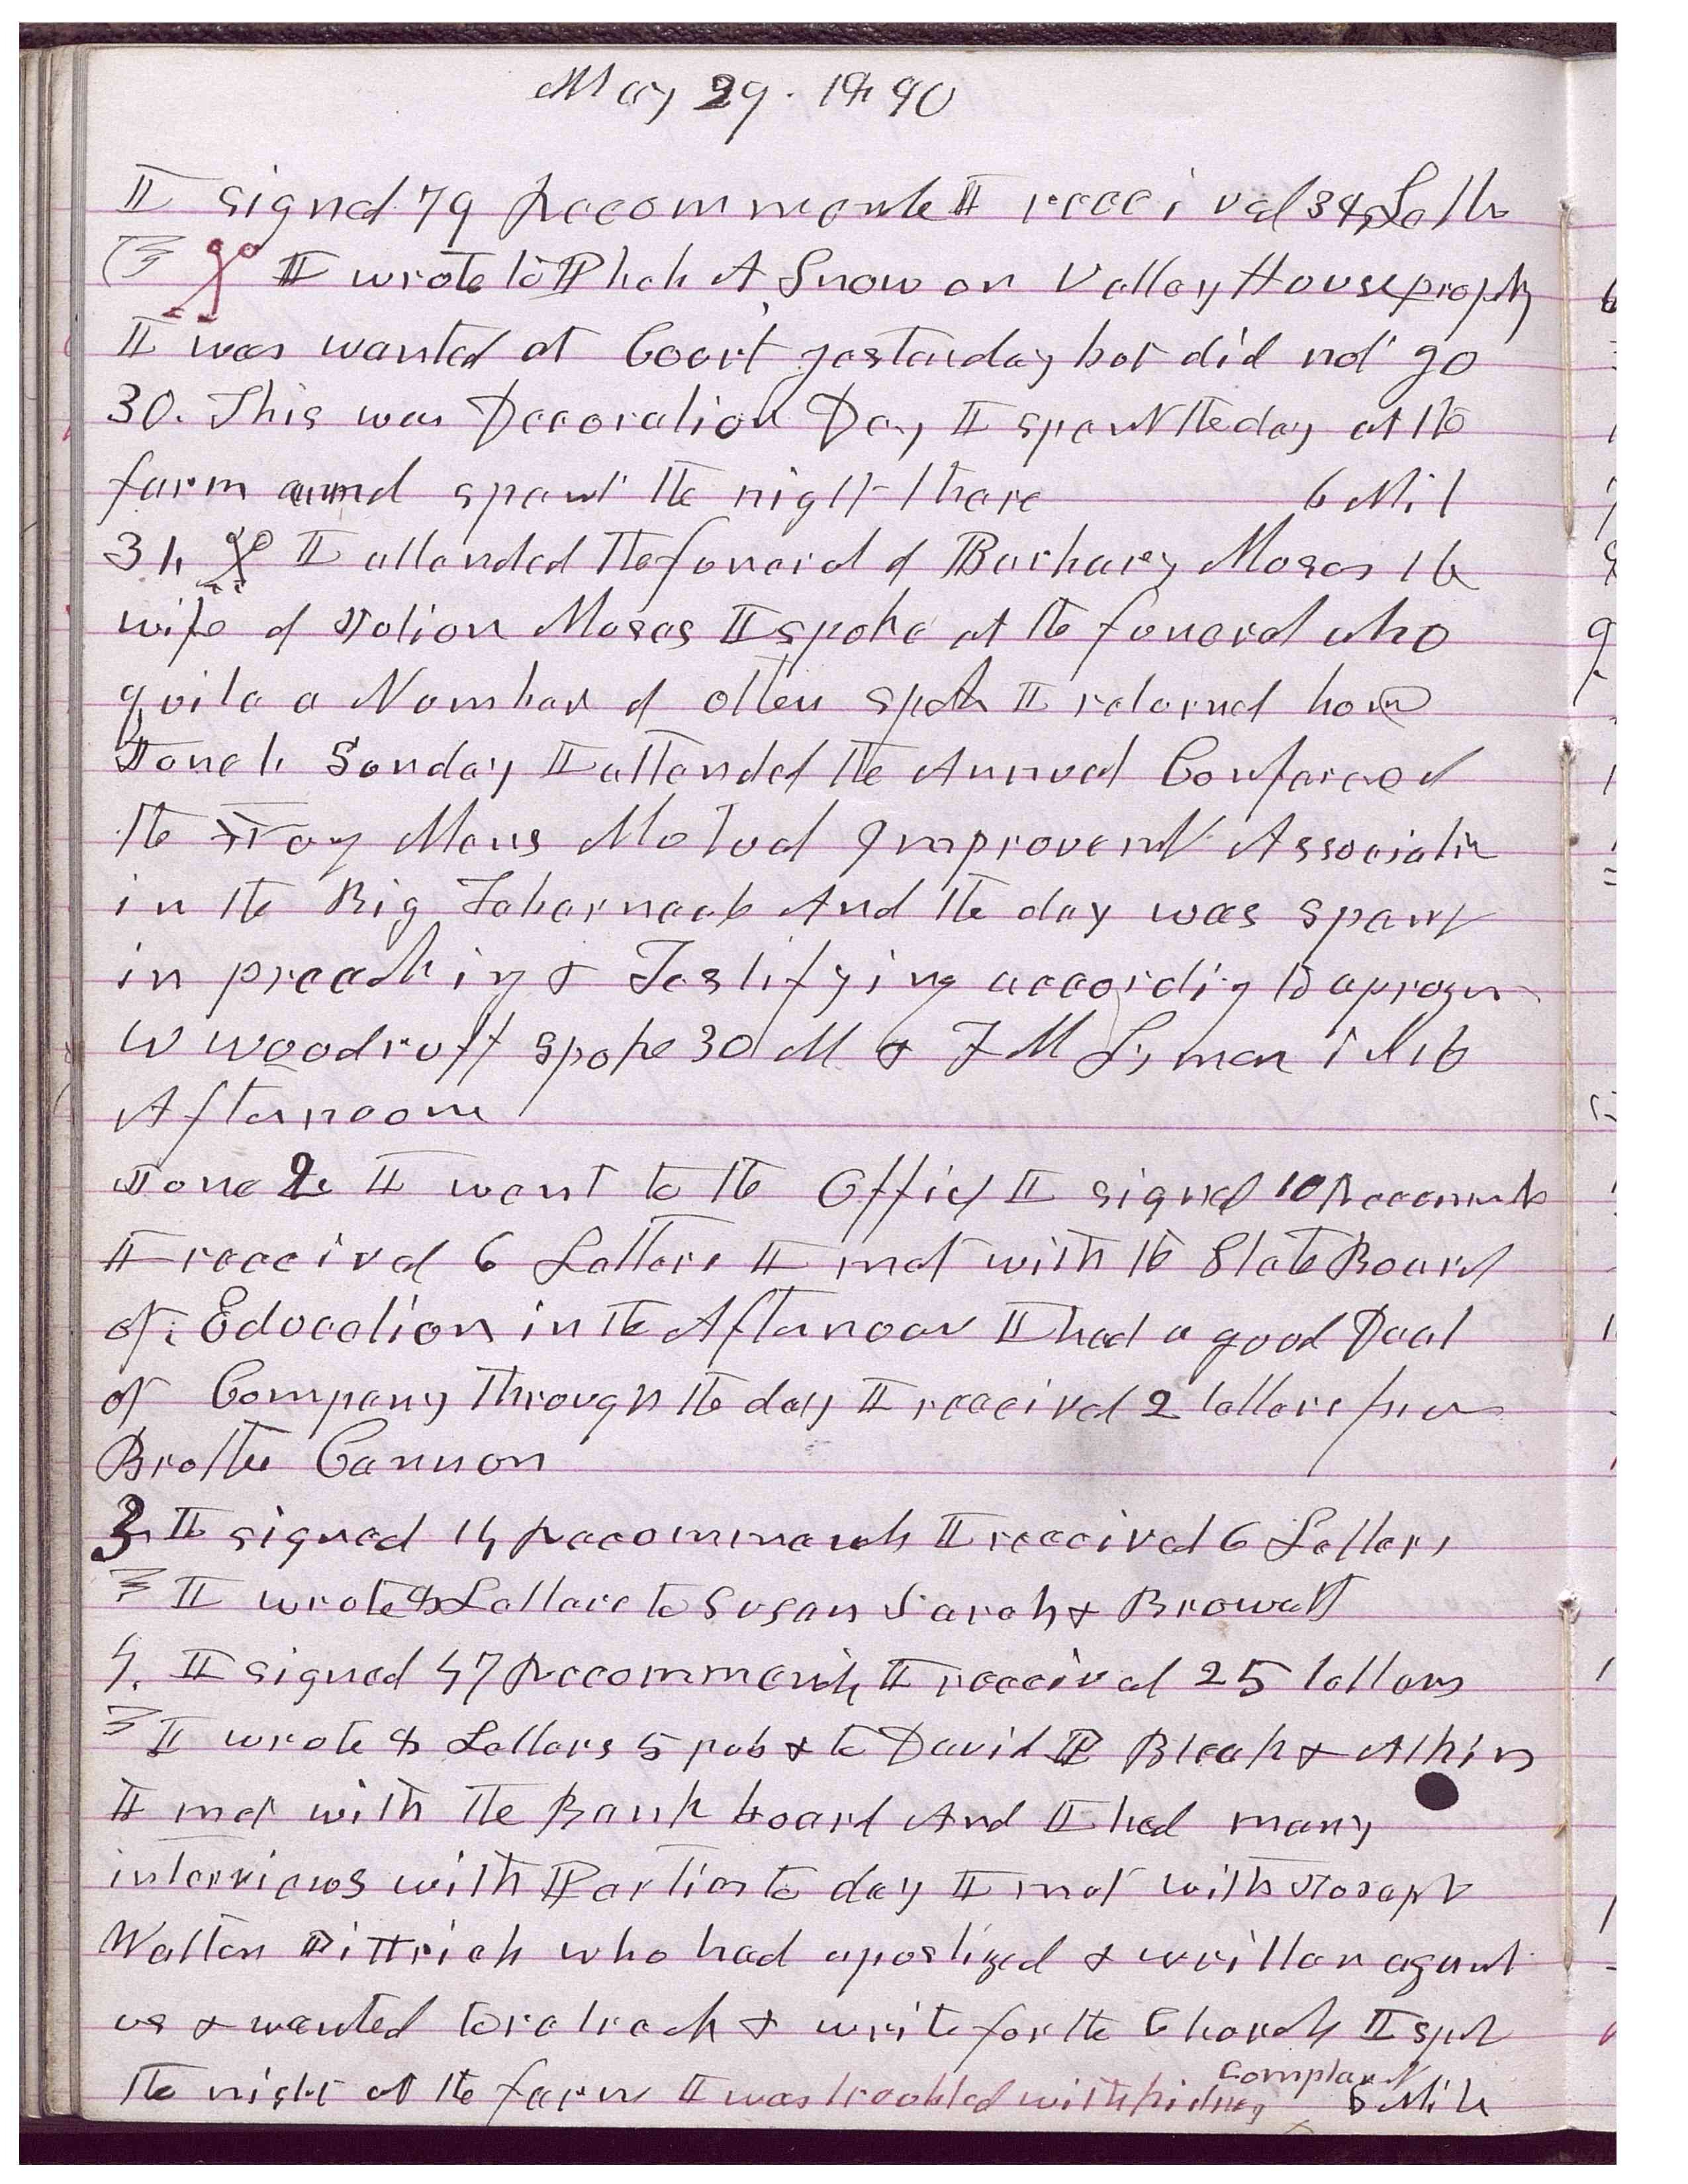 May 29. 1890
I signed 79 Recommends I received 34 Letters
I wrote to Pres A Snow on Valley House property
I was wanted at Court yesterday but did not go
30. This was Decoration Day I spent the day at the
farm and spent the night there 6 Mil
31. I attended the funeral of Barbary Moses the
wife of Julian Moses I spoke at the funeral who
quite a Number of others spoke I returned home
June 1. Sunday I attended the Annual Conference of
the Young Mens Mutual Improvement Association
in the Big Tabernacle And the day was spent
in preaching & Testifying according to a program
W Woodruff spoke 30 M & F M Lyman in the
Afternoon
June 2. I went to the Office I signed 10 Recommends
I received 6 Letters I met with the State Board
of Education in the Afternoon I had a good Deal
of Company through the day I received 2 letters from
Brother Cannon
3. I signed 14 Recommends I received 6 Letters
I wrote 3 Letters to Susan Sarah & Browett
4. I signed 47 Recommends I received 25 letters
I wrote 8 Letters 5 pub & to David P Bleak & Atkin
I met with the Bank board And I had many
interviews with Parties to day I met with Joseph
Walter Dittrich who had apostized & written against
us & wanted to retrach & write for the Church I spent
Complaint
the night at the farm I was troubled with kidney 6 Mile